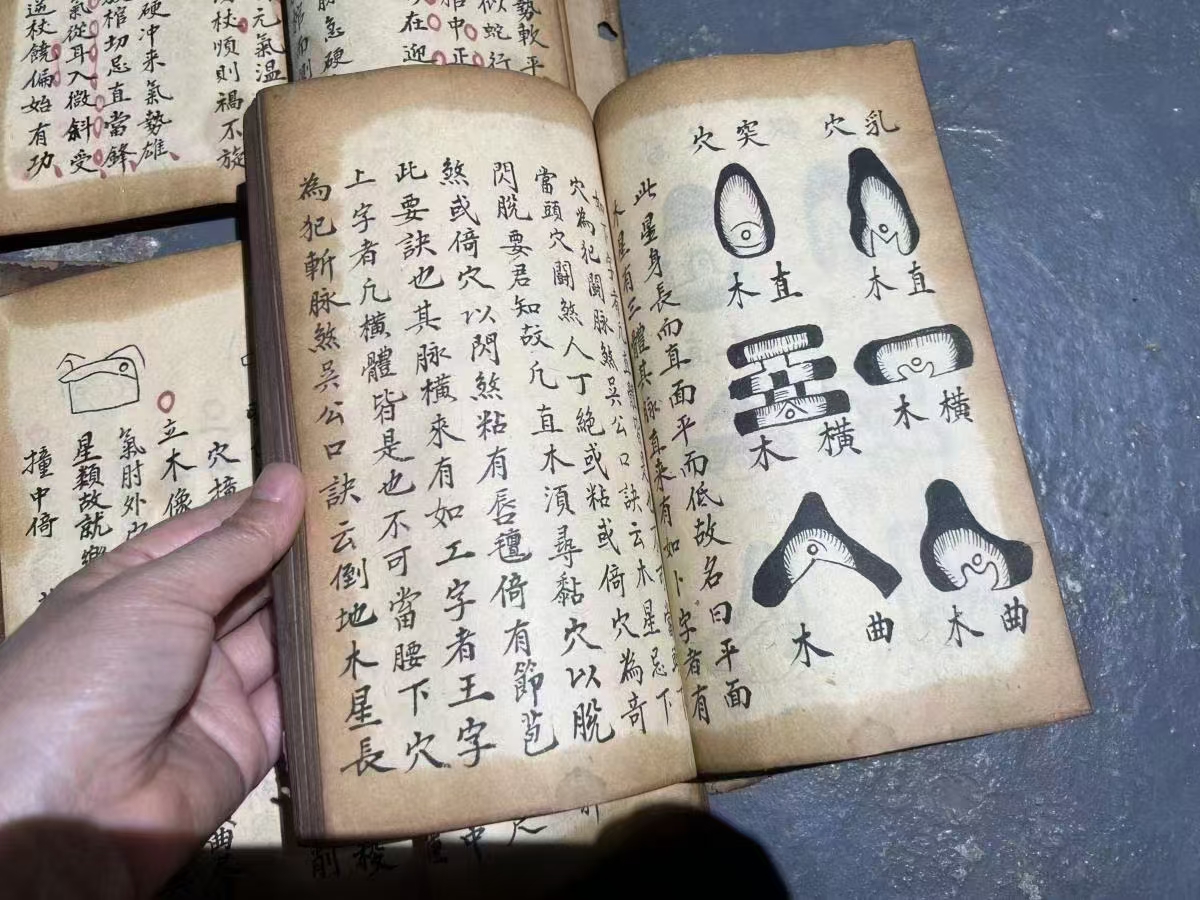 乳穴
突穴
直木
直木
橫木
橫木
曲木
曲木
此星身長而直面平而低故名曰平面
木星有三體其脉直来有如卜字者有
穴為犯鬪脉煞吳公口訣云木星忌下
當頭穴鬪煞人丁絶或粘或倚穴為奇
閃脫要君知故凢直木湏尋黏穴以脫
煞或倚穴以閃煞粘有唇氊倚有節苞
此要訣也其脉橫來有如工字者王字
上字者凢橫體皆是也不可當腰下穴
為犯斬脉煞吳公口訣云倒地木星長
勢軟平
似蛇行
棺中正
在迎
急硬
元氣温
杖順則禍不旋
硬冲来氣勢雄
棺切忌直當鋒
氣從耳入微斜受
逆杖饒偏始有功
穴撞
立木像
氣肘外
星類故就
撞中倚